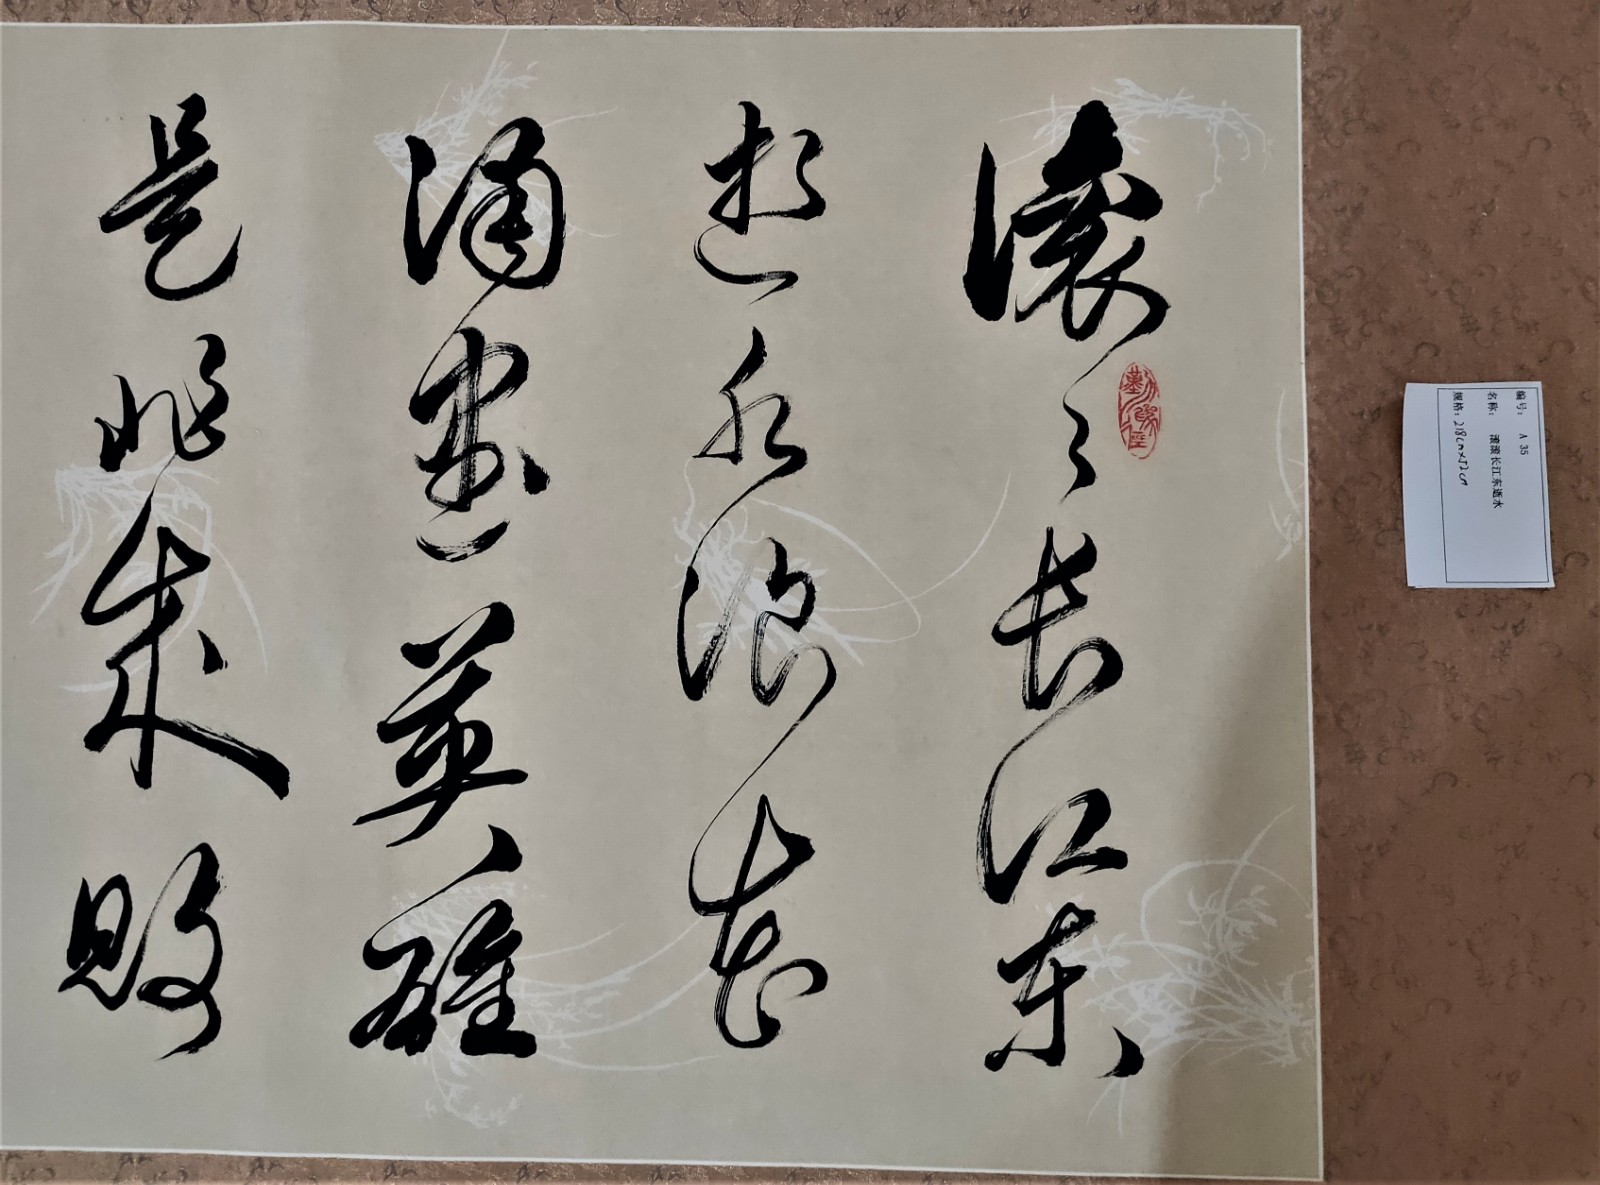 滚々长江东
逝水浪花
淘盡英雄
是非成敗
编号: A 35
名称: 滚滚长江东逝水
规格: 218cm×52cm